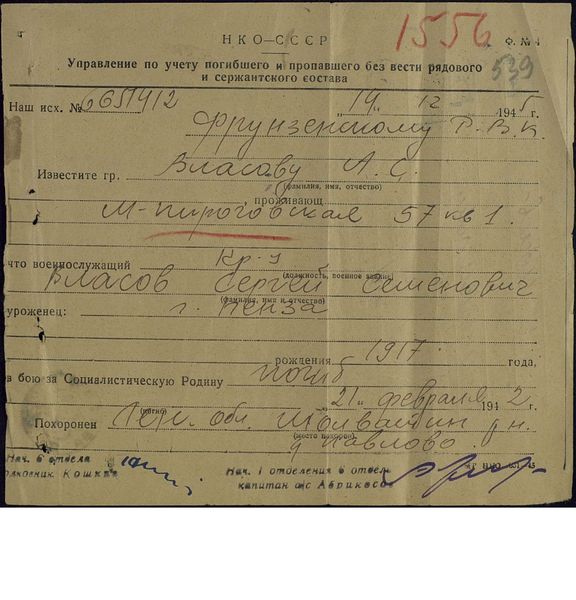 1556
НКО—СССР
Ф. № 4
Управление по учету погибшего и пропавшего без вести рядового
и сержантского состава
539
Наш исх. № 6651412 „14„ 12 1945 г.
Фрунзенскому Р.В.К.
Известите гр. Власову А. С.
(фамилия, имя, отчество)
проживающ
М-пироговская 57 кв 1.
что военослужащий Кр-ц
(должность, военное звание)
Власов Сергей Семенович
(фамилия, имя и отчество)
уроженец: г. Пенза
рождения 1917 года,
в бою за Социалистическую Родину погиб
(погиб) „21„ февраля 1942 г.
Похоронен Лен. обл. р-н.
(место похорон)
д Павлово.
Нач. 6 отдела
полковник Кошкин
Нач. 1 отделения 6 отдела
капитан а/с Абрикосов